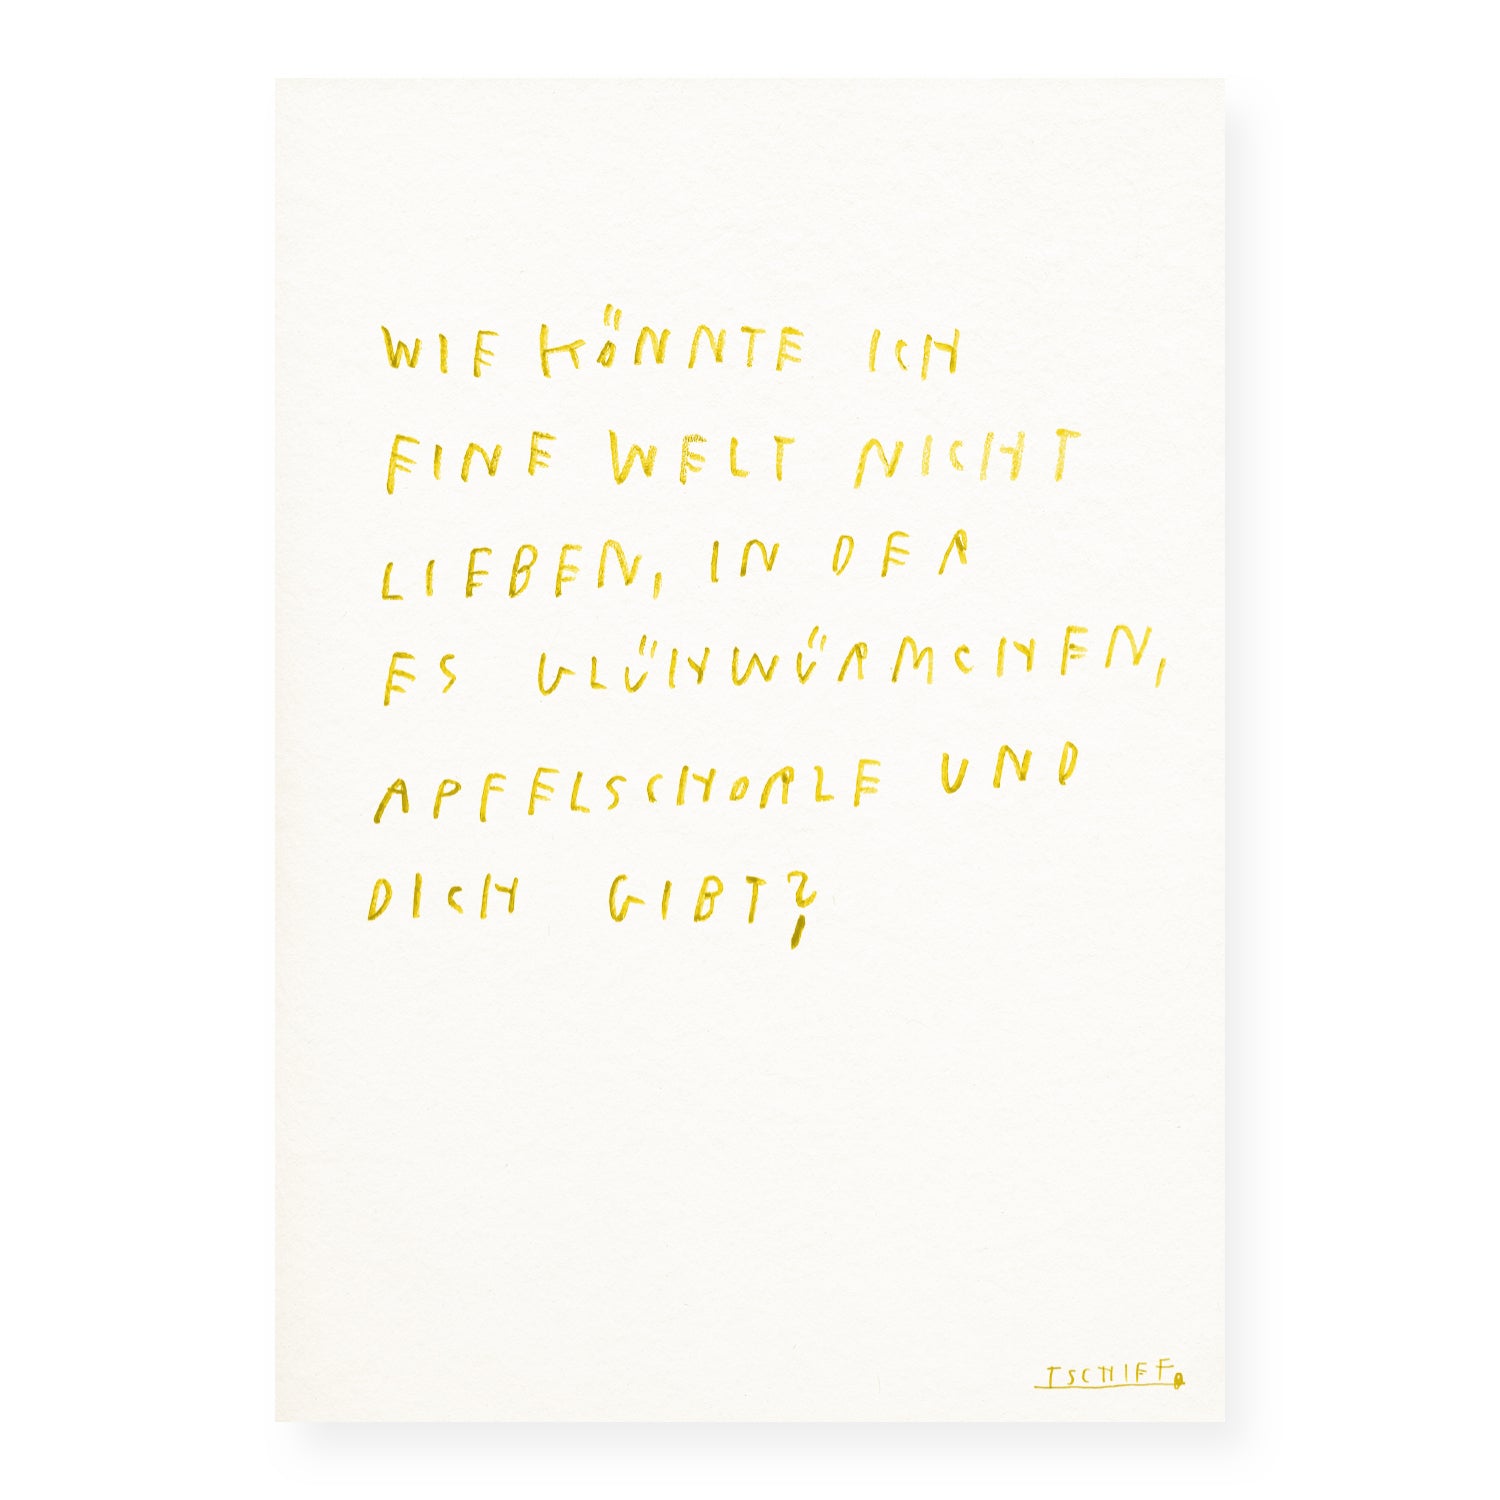 WIE KÖNNTE ICH
EINE WELT NICHT
LIEBEN, IN DER
ES GLÜHWÜRMCHEN,
APFELSCHORLE UND
DICH GIBT?
TSCHIEP.